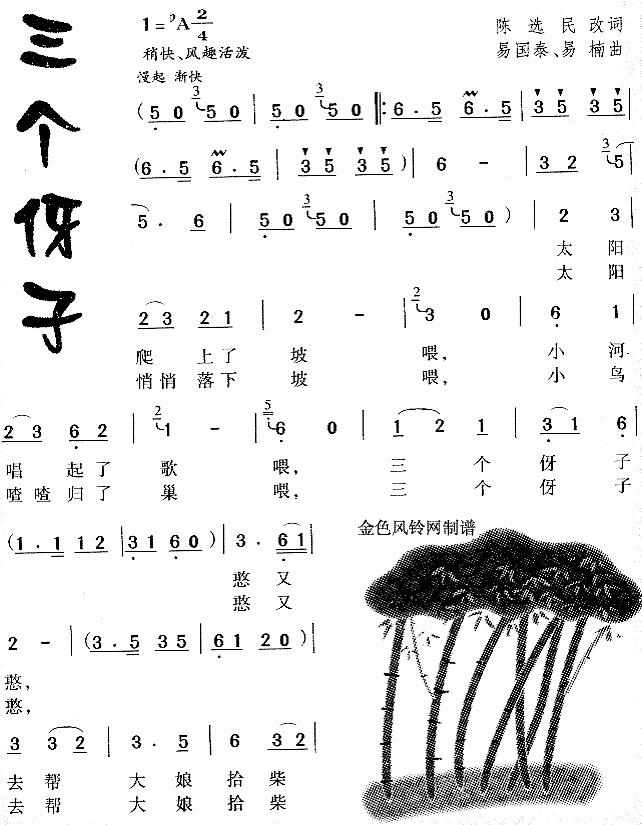 三个伢子
1=♭A 2/4
陈选民改词
稍快、风趣活泼
易国泰、易楠曲
漫起 渐快
(5 0 3 5 0 | 5 0 3 5 0 ‖: 6 . 5 6 . 5 | 3 5 3 5 |
(6 . 5 6 . 5 | 3 5 3 5 ) | 6 - | 3 2 3 5 |
5 . 6 | 5 0 3 5 0 | 5 0 3 5 0 ) | 2 3 |
太阳
太阳
2 3 2 1 | 2 - | 2 3 0 | 6 1 |
爬上了坡喂,小河
悄悄落下坡喂,小鸟
2 3 6 2 | 2 1 - | 5 6 0 | 1 2 1 | 3 1 6 |
唱起了歌喂,三个伢子
喳喳归了巢喂,三个伢子
(1 . 1 1 2 | 3 1 6 0 ) | 3 . 6 1 |
金色风铃网制谱
憨又
憨又
2 - | (3 . 5 3 5 | 6 1 2 0 ) |
憨,
憨,
3 3 2 | 3 . 5 | 6 3 2 |
去帮大娘拾柴
去帮大娘拾柴